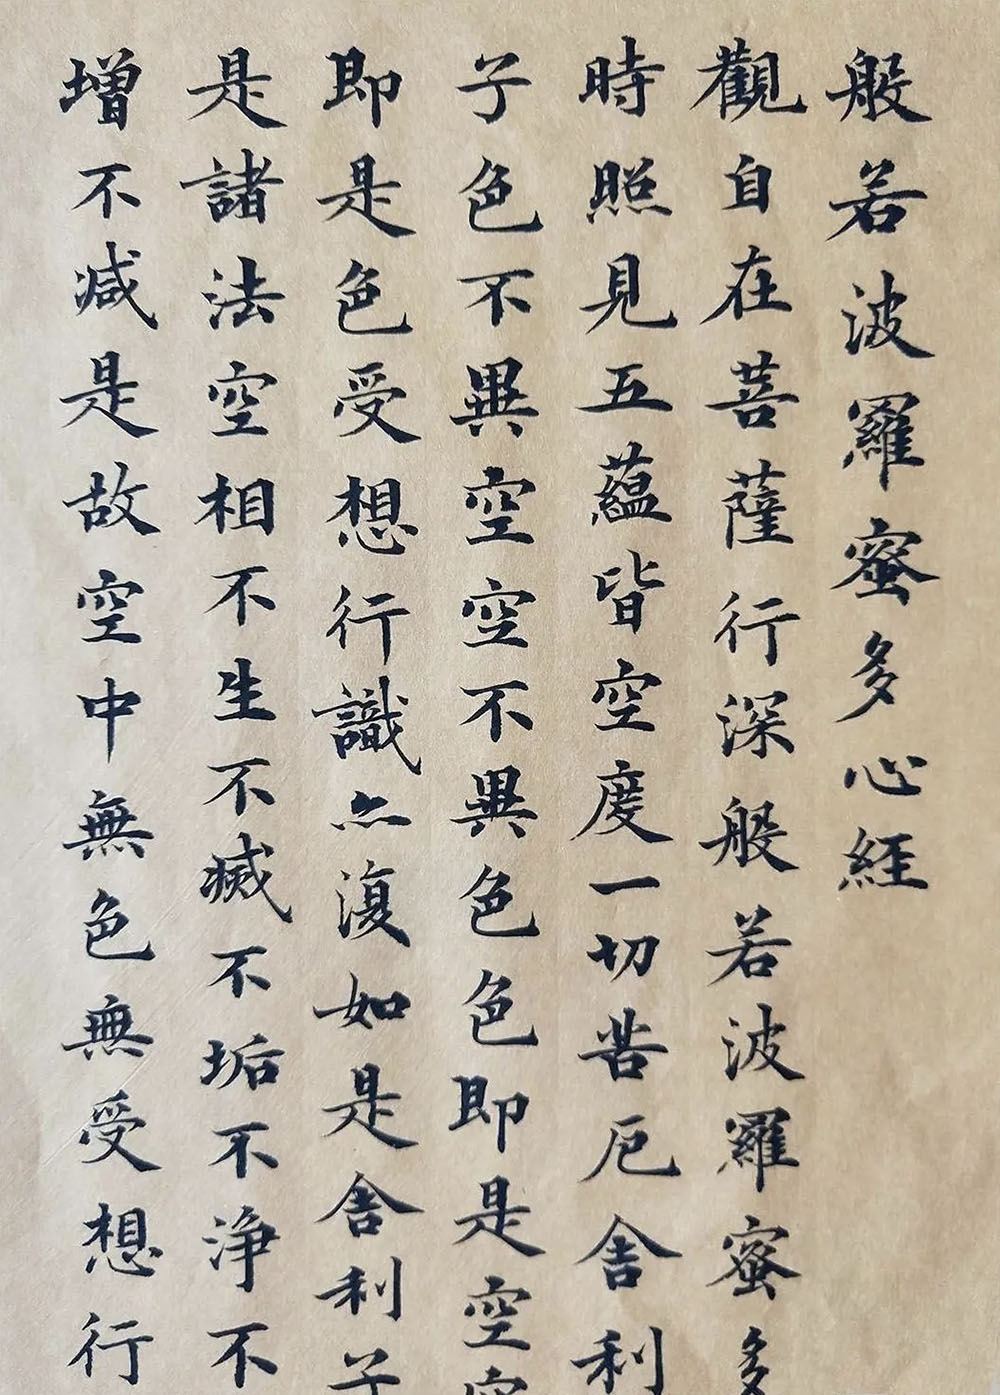 般若波羅蜜多心経
觀自在菩薩行深般若波羅蜜多
時照見五蘊皆空度一切苦厄舍利
子色不異空空不異色色即是空空
即是色受想行識亦復如是舍利子
是諸法空相不生不滅不垢不浄不
增不減是故空中無色無受想行